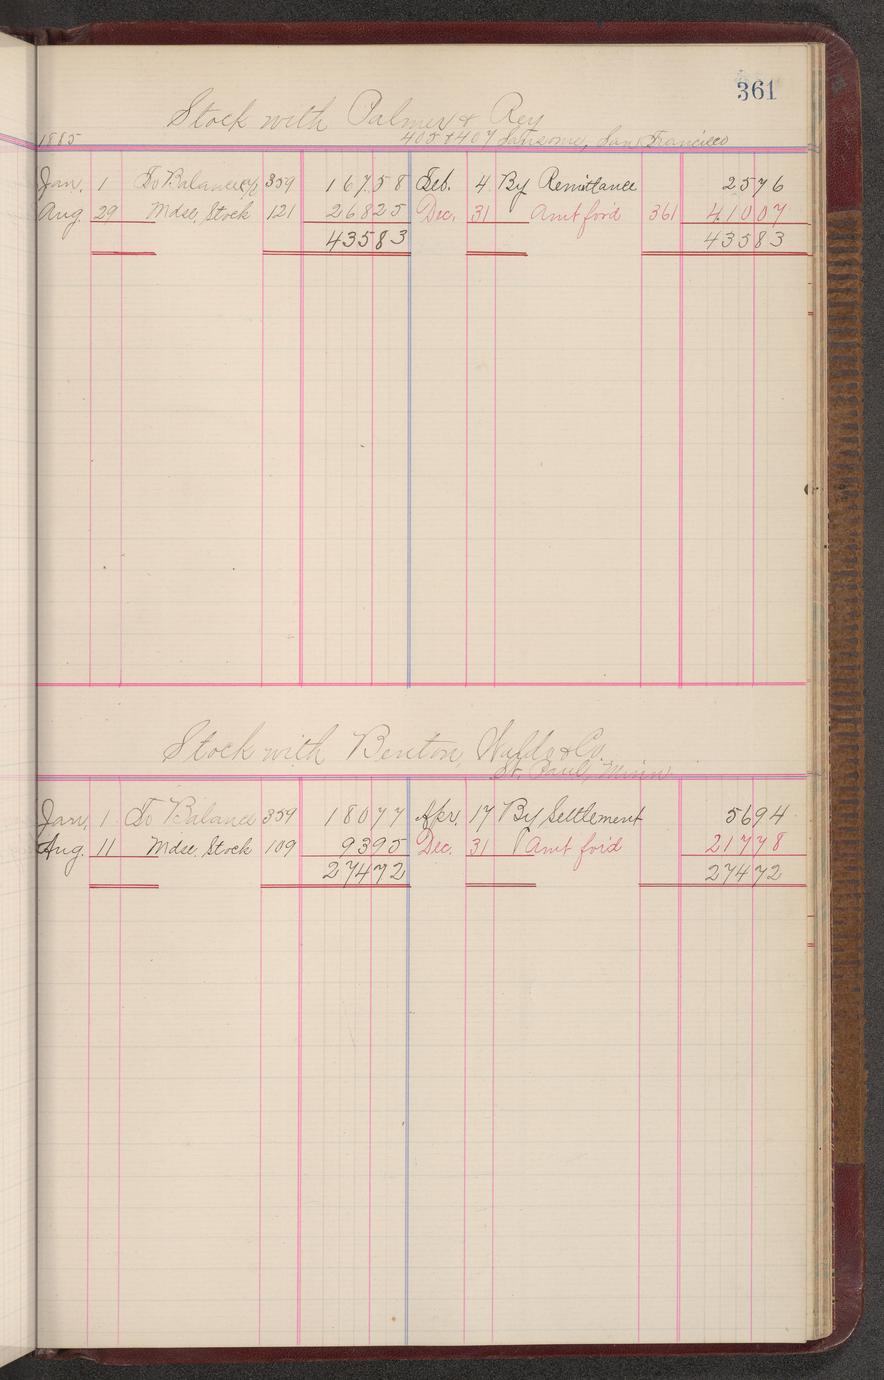 361
Stock with Palmer & Rey
405 & 407 Sansome, San Francisco
1885
Jan. 1 To Balance 359 167.58 Feb. 4 By Remittance 2576
Aug. 29 Mdse. Stock 121 26825 Dec. 31 Amt for'd 361 41007
43583 43583
Stock with Benton, Waldo & Co.
St. Paul, Minn.
Jan. 1 To Balance 359 18077 Apr. 17 By Settlement 5694
Aug. 11 Mdse. Stock 109 9395 Dec. 31 Amt for'd 21778
27472 27472